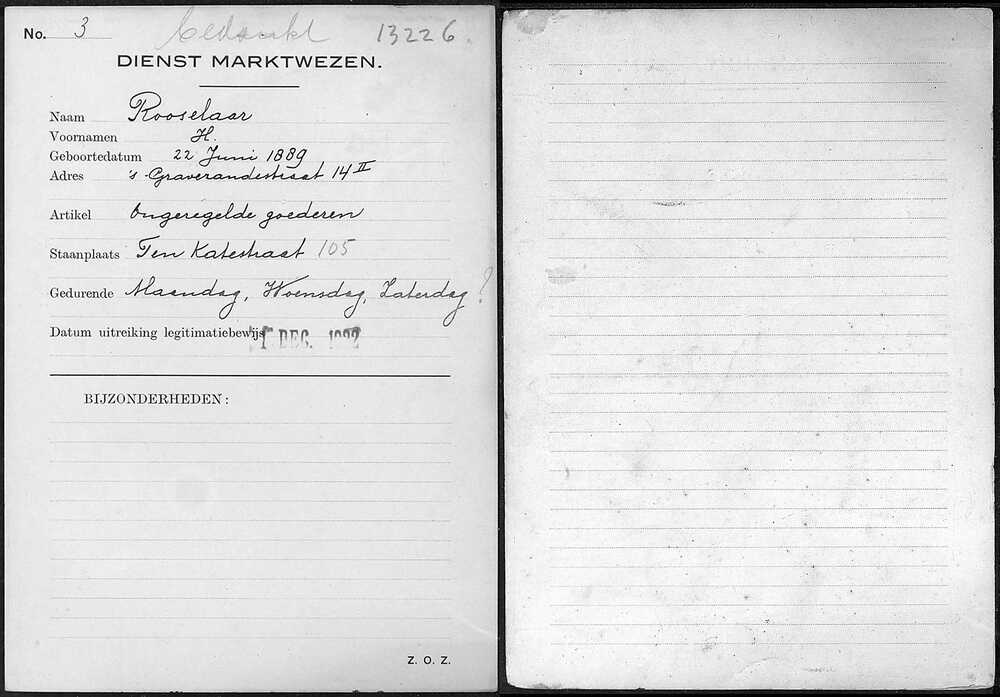 No. 3 Bedankt 13226.
DIENST MARKTWEZEN.
Naam Rooselaar
Voornamen H.
Geboortedatum 22 Juni 1889
Adres 's-Graverandestraat 14 II
Artikel Ongeregelde goederen
Staanplaats Ten Katestraat 105
Gedurende Maandag, Woensdag, Zaterdag ?
Datum uitreiking legitimatiebewijs 1 DEC.
BIJZONDERHEDEN:
Z. O. Z.